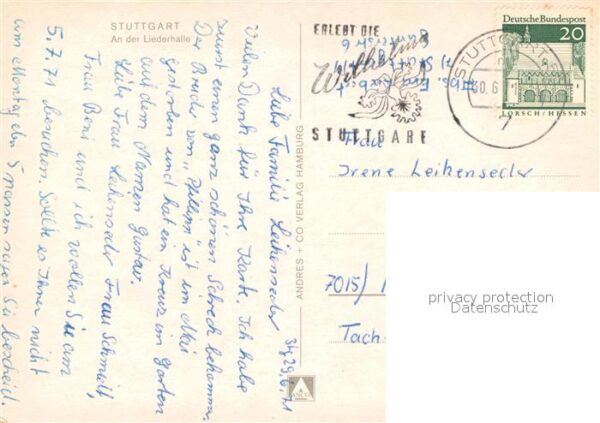 STUTTGART
An der Liederhalle
Stg 29.6.71
Liebe Familie Leihenseder
Vielen Dank für Ihre Karte. Ich habe
zuerst einen ganz schönen Schreck bekommen.
Der Bruder vom "Philipp" ist im Mai
gestorben und hat ein Kreuz im Garten
auf dem Namen Gustav.
Liebe Frau Leihenseder, Frau Schmidt,
Frau Benz und ich wollen Sie am
5.7.71 besuchen. Sollte es Ihnen nicht
am Montag den 5 passen sagen Sie bescheid.
ANDRES + CO VERLAG HAMBURG
ANCO
ERLEBT DIE
Wilhelma
STUTTGART
STUTTGART
30.6
Deutsche Bundespost
20
LORSCH/HESSEN
Frau
Irene Leihenseder
7015/
Tach-
privacy protection
Datenschutz